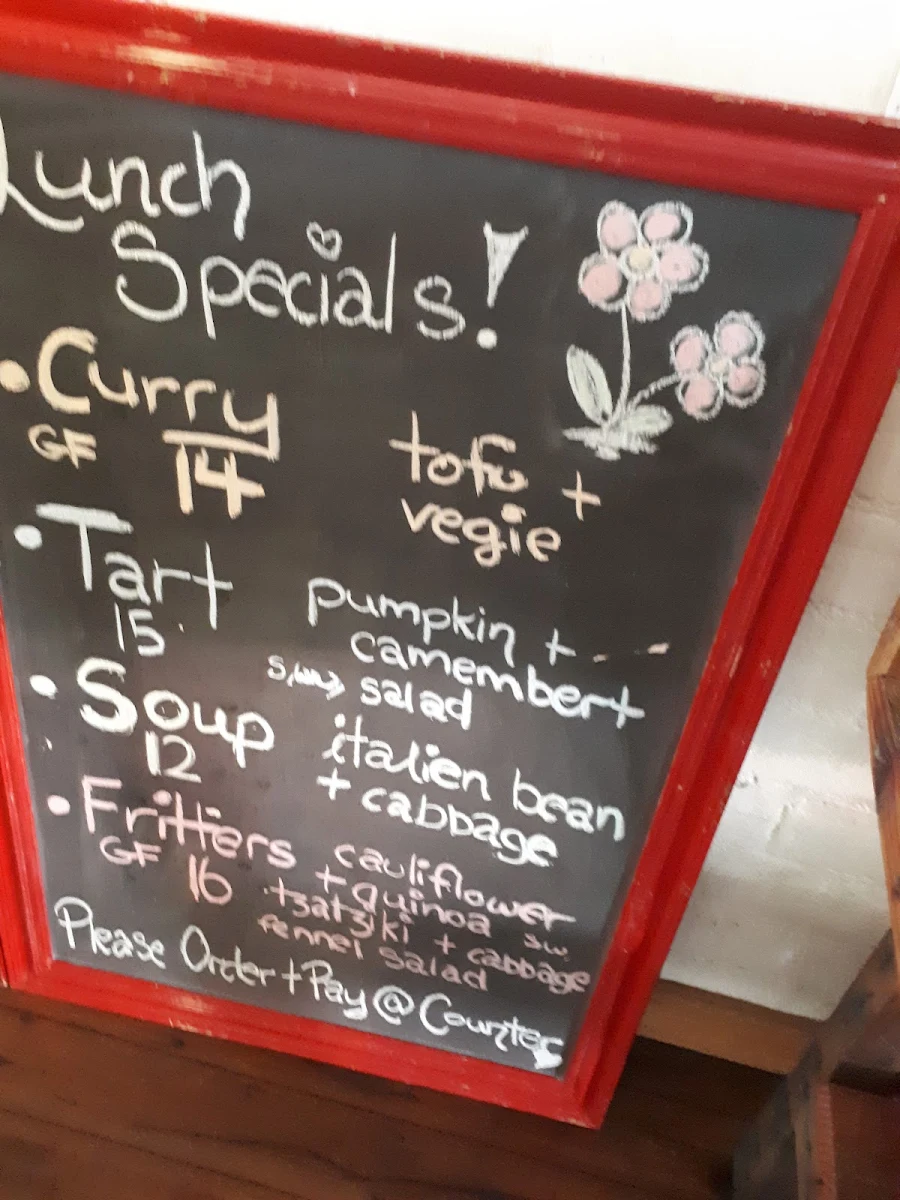 Lunch
Specials!
• Curry
GF 14 tofu +
vegie
• Tart pumpkin +
15 camembert
salad
• Soup italien bean
12 + cabbage
• Fritters cauliflower
GF 16 + quinoa sw
+ tzatziki + cabbage
fennel salad
Please Order + Pay @ Counter